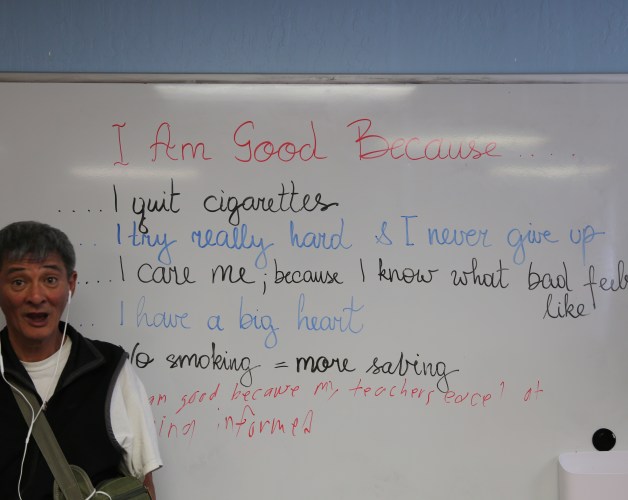 I Am Good Because.....
....I quit cigarettes
..I try really hard & I never give up
....I care me; because I know what bad feels
like
...I have a big heart
No smoking = more saving
am good because my teachers at
informed